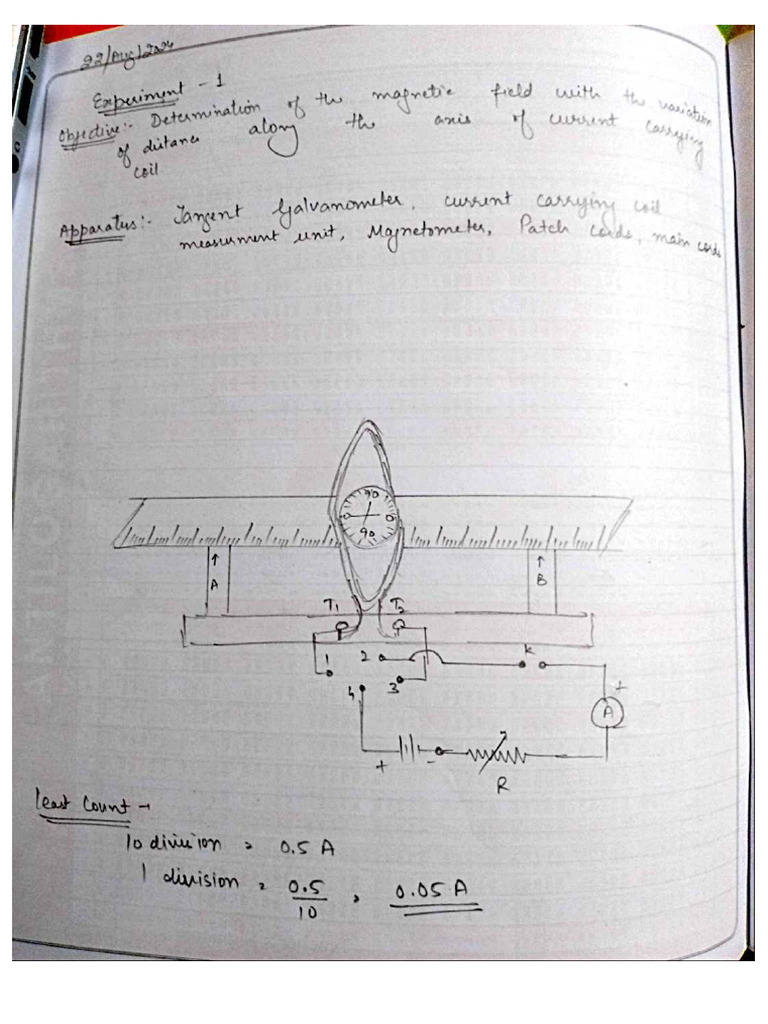 22/Aug/2024
Experiment - 1
Objective:- Determination of the magnetic field with the variation
of distance along the axis of current carrying
coil
Apparatus:- Tangent Galvanometer, current carrying coil
measurment unit, Magnetometer, Patch cords, main cords
90
0 0
90
↑ ↑
A B
T1 T2
1 2 K
4 3
+
A
+ -
R
Least Count →
10 division = 0.5 A
1 division = 0.5/10 = 0.05 A